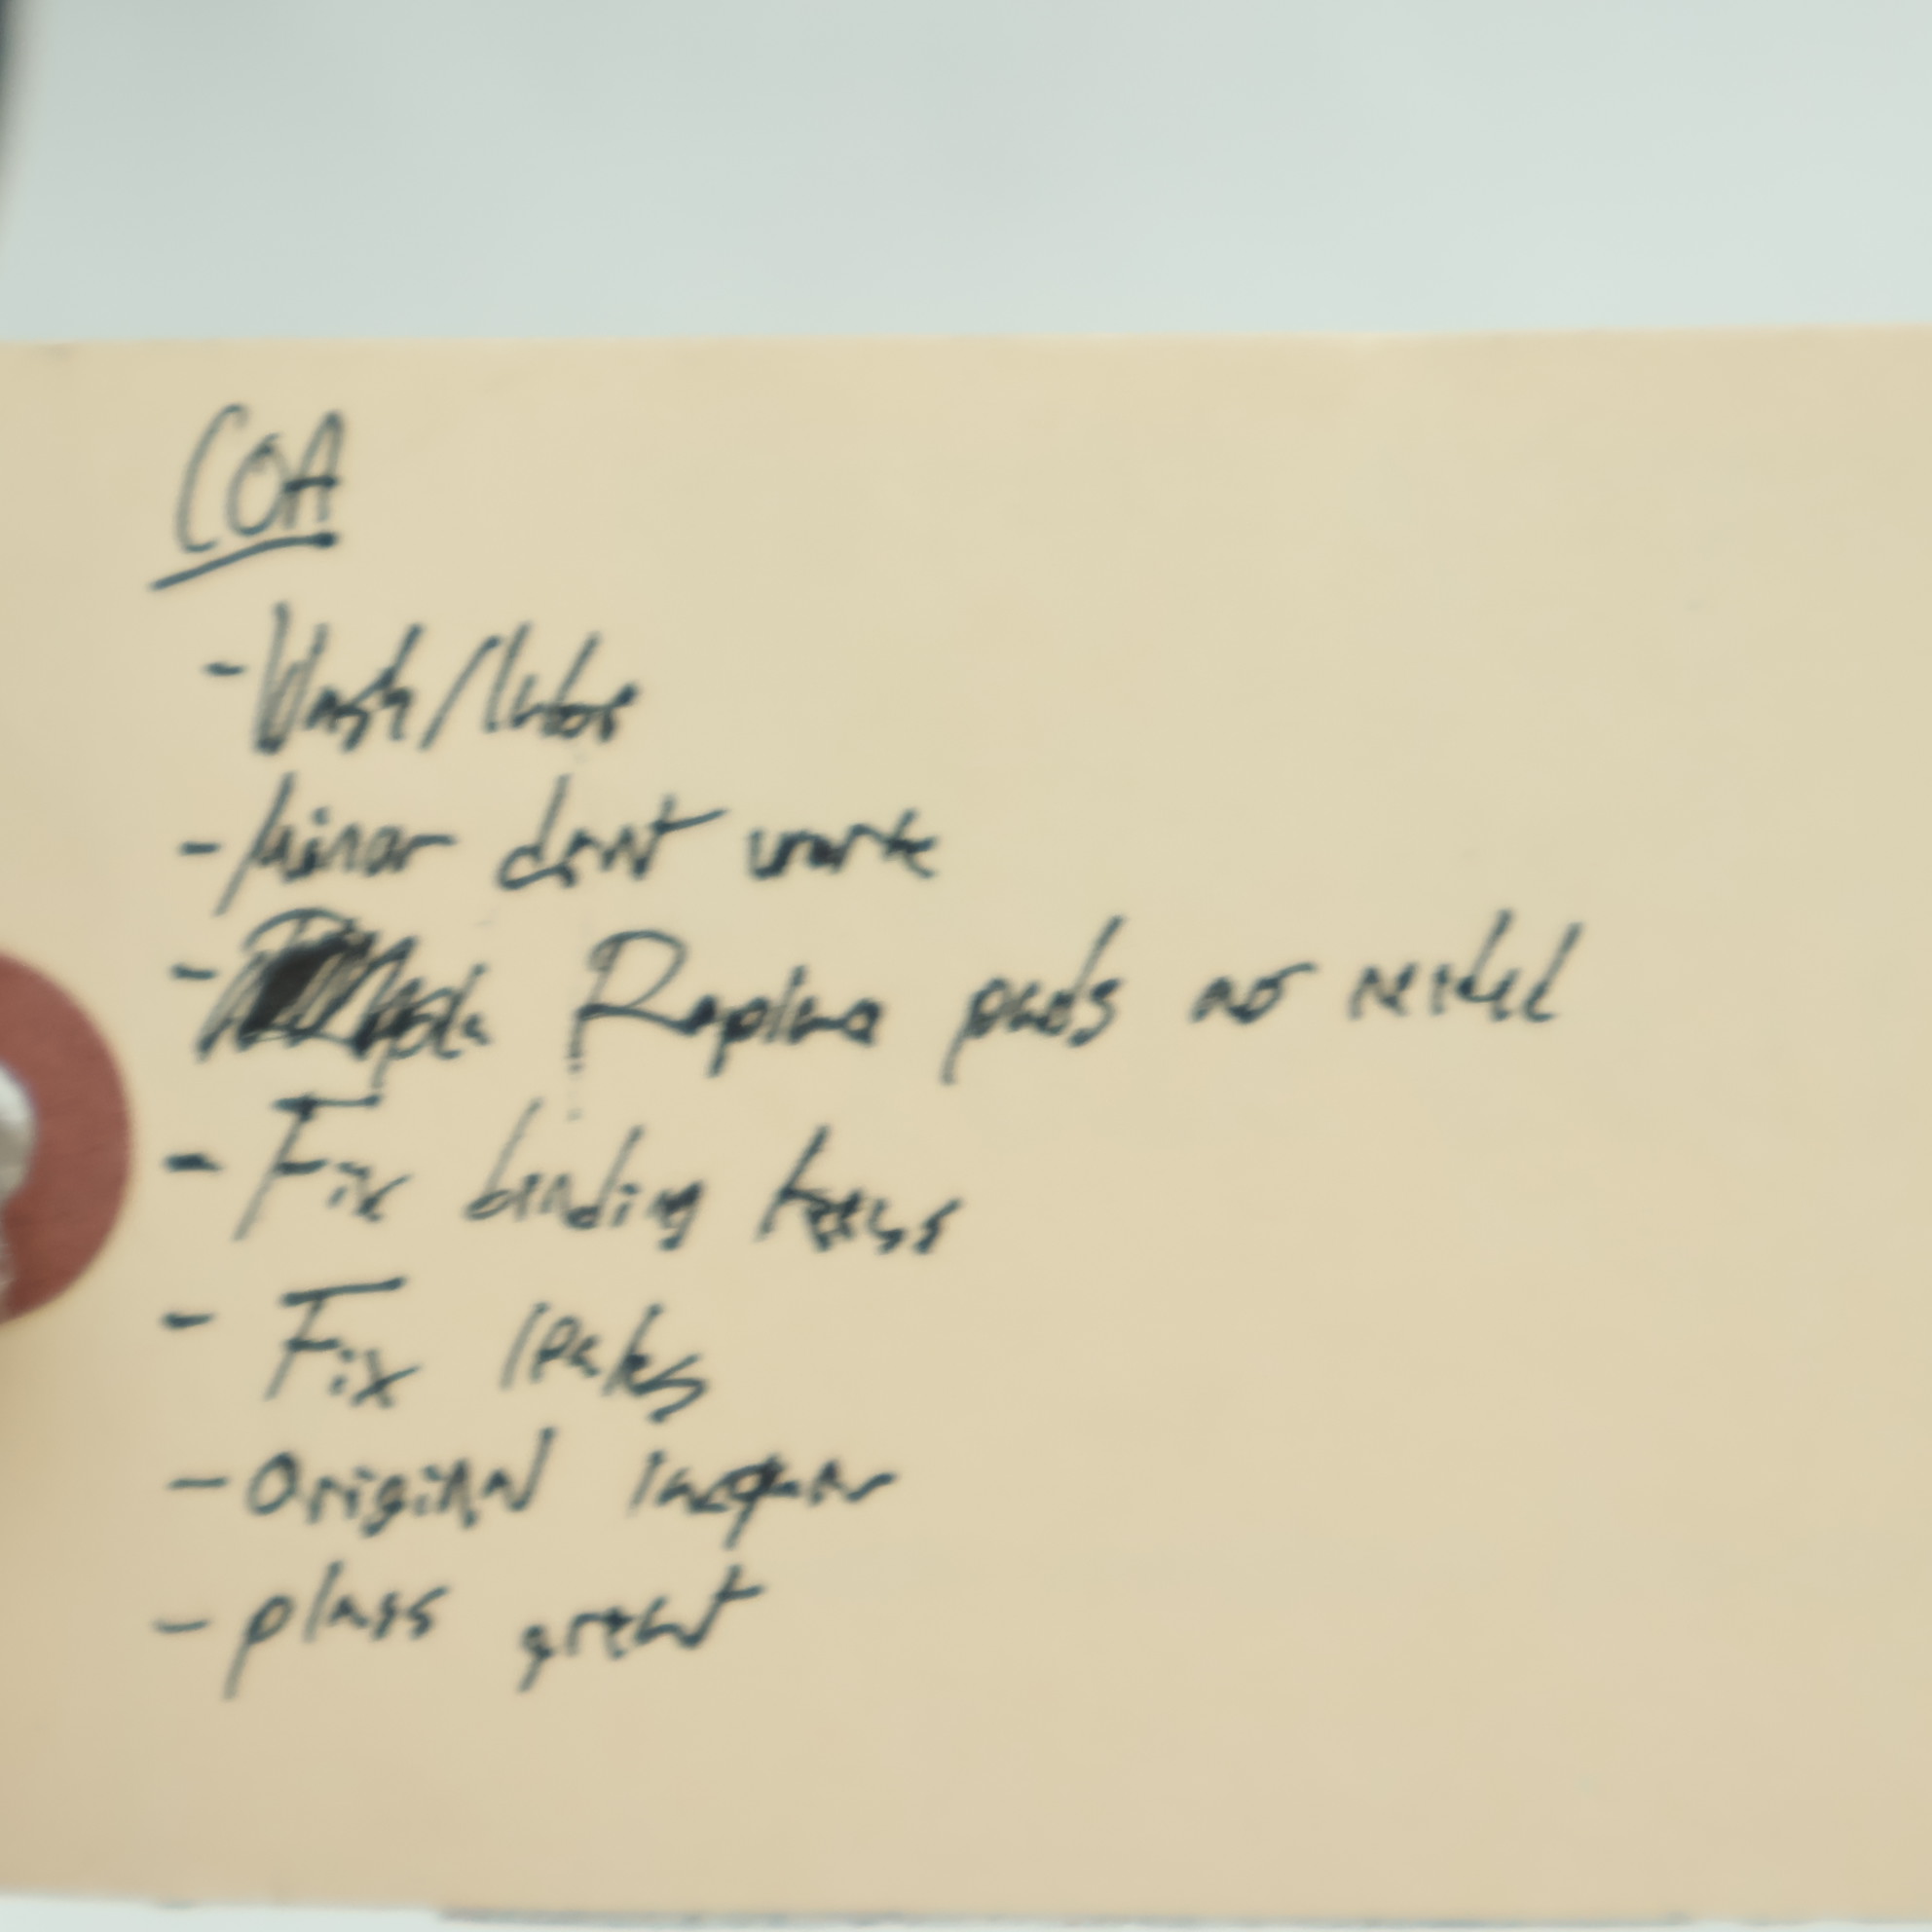 COA
- Wash/lube
- Minor dent work
- Replace pads as needed
- Fix binding keys
- Fix leaks
- Original lacquer
- plays great